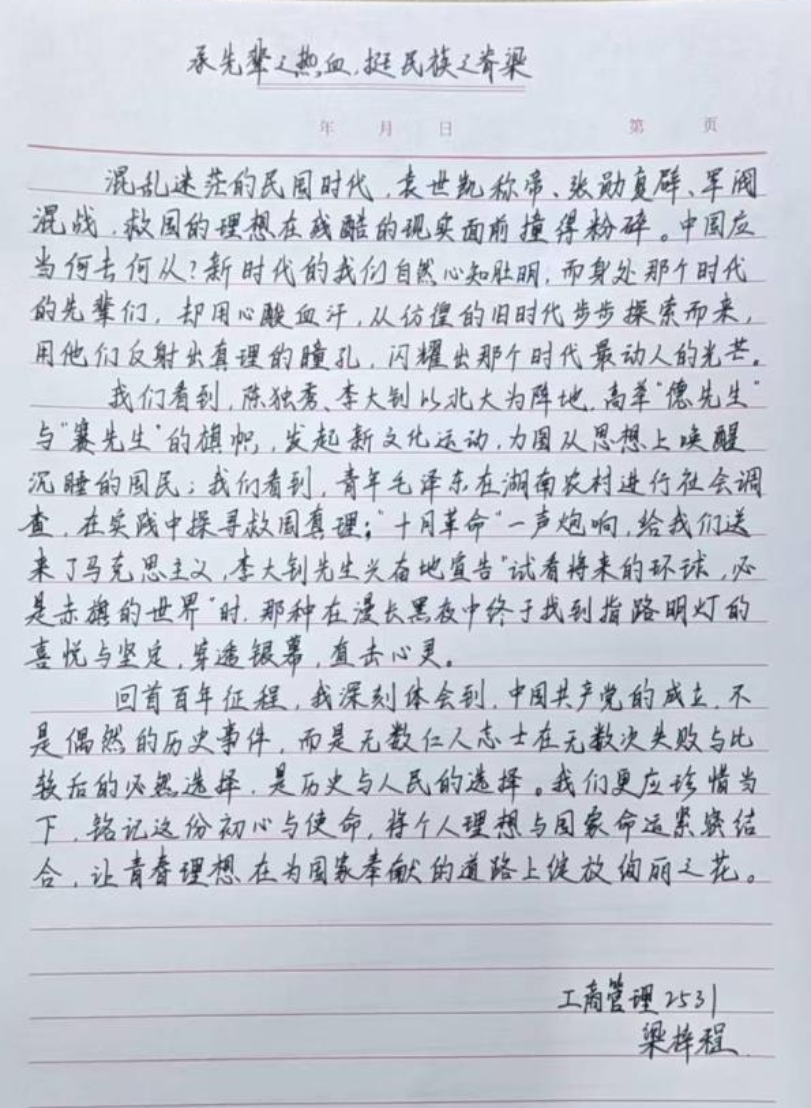 承先辈之热血,挺民族之脊梁
年 月 日 第 页
混乱迷茫的民国时代,袁世凯称帝、张勋复辟、军阀
混战,救国的理想在残酷的现实面前撞得粉碎。中国应
当何去何从?新时代的我们自然心知肚明,而身处那个时代
的先辈们,却用心酸血汗,从彷徨的旧时代步步探索而来,
用他们反射出真理的瞳孔,闪耀出那个时代最动人的光芒。
我们看到,陈独秀、李大钊以北大为阵地,高举“德先生”
与“赛先生”的旗帜,发起新文化运动,力图从思想上唤醒
沉睡的国民;我们看到,青年毛泽东在湖南农村进行社会调
查,在实践中探寻救国真理;“十月革命”一声炮响,给我们送
来了马克思主义,李大钊先生兴奋地宣告“试看将来的环球,必
是赤旗的世界”时,那种在漫长黑夜中终于找到指路明灯的
喜悦与坚定,穿透银幕,直击心灵。
回首百年征程,我深刻体会到,中国共产党的成立,不
是偶然的历史事件,而是无数仁人志士在无数次失败与比
较后的必然选择,是历史与人民的选择。我们更应珍惜当
下,铭记这份初心与使命,将个人理想与国家命运紧密结
合,让青春理想在为国家奉献的道路上绽放绚丽之花。
工商管理2531
梁梓程